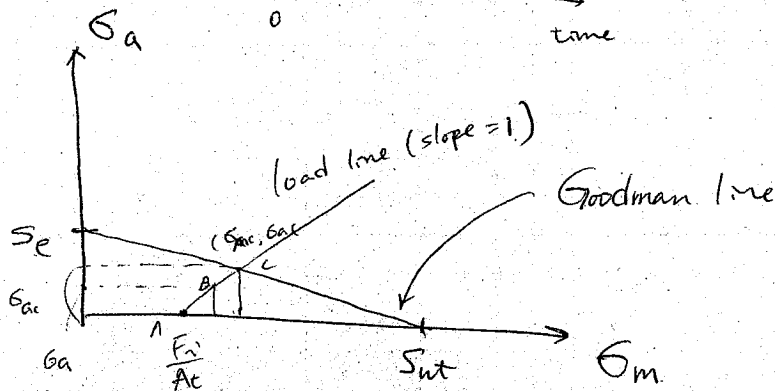 σa
0
time
load line (slope = 1)
Goodman line
Se
(σmc, σac)
C
B
σac
A
σa
Fi
At
Sut
σm